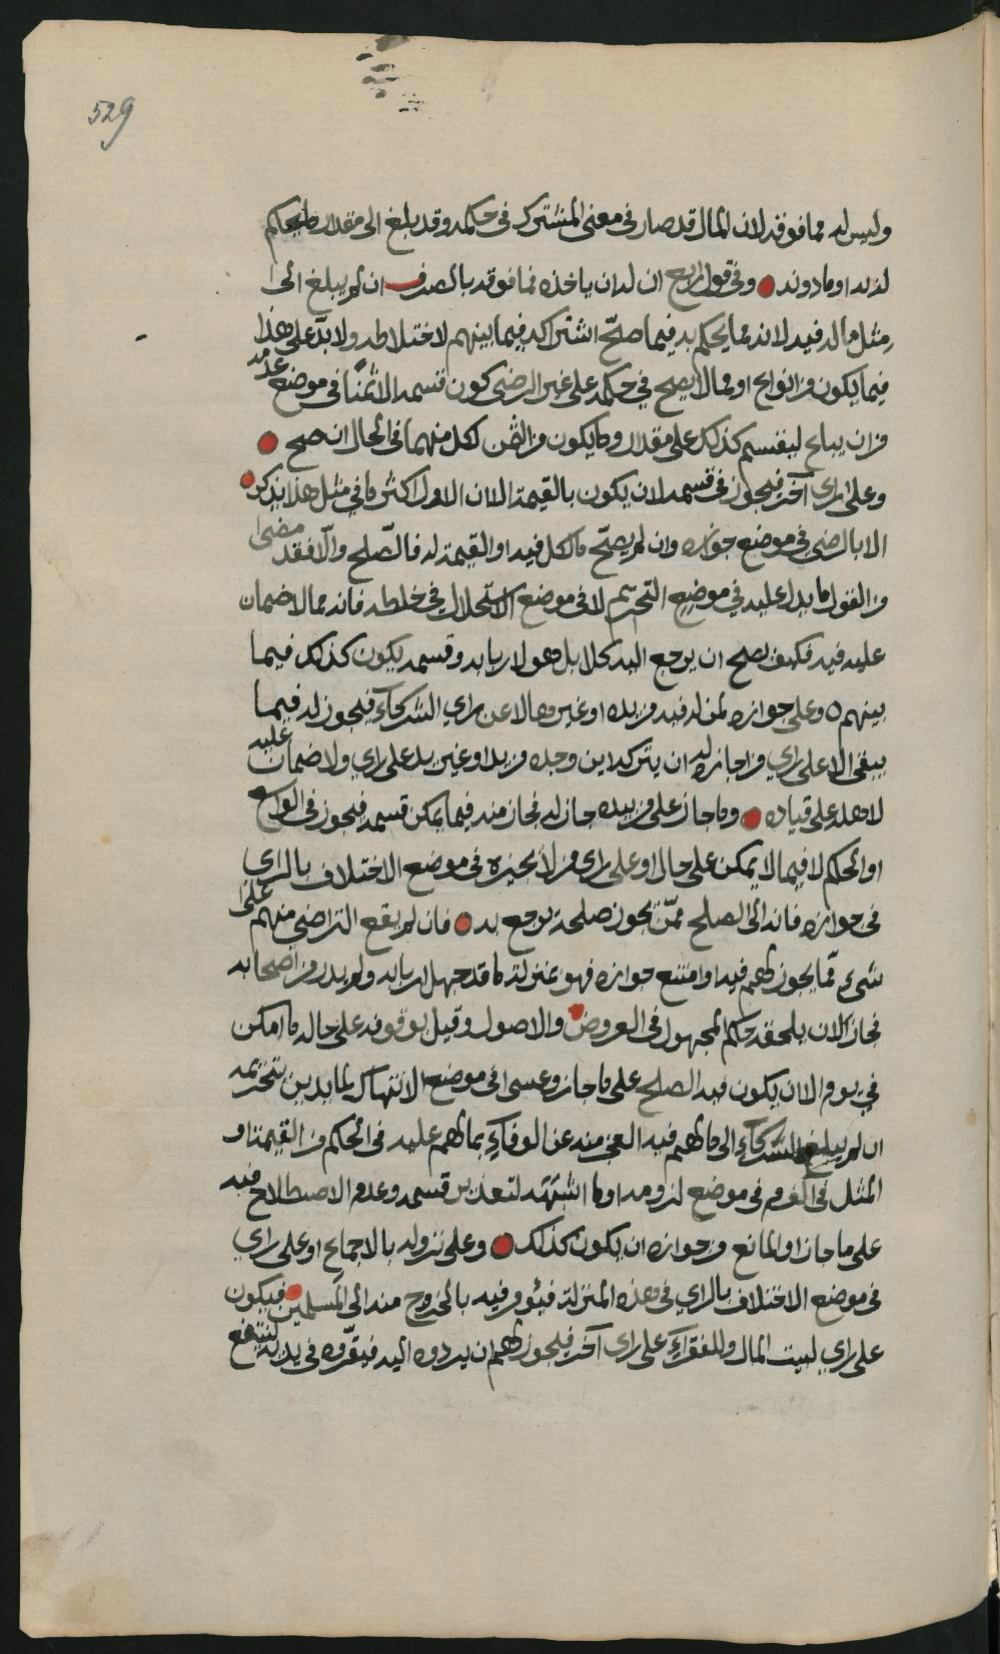 529
وليس له مما فوقه لان المال قد صار في معنى المشترك في حكمه وقد بلغ الى مقدار ما يحكم
له به او ما دونه وفي قول رابع ان له ان ياخذه فما فوقه بالصرف ان لم يبلغ الى
مثل ماله فيه لانه مما يحكم به فيما صحّ اشتراكه فيما بينهم لاختلاطه ولا بدّ على هذا
فيما يكون من انواع او مالا يصح في حكمه على غير الرضى كون قسمه الا ثمنًا في موضع عدمه
من ان يباع ليقتسم كذلك على مقدار وما يكون من الثمن لكل منهما في الحال ان صح
وعلى راي آخر فيجوز في قسمه لان يكون بالقيمة الا ان الاول اكثر ما في مثل هذا يذكر
الا بالرضى في موضع جوازه وان لم يصحّ مالكل فيه او القيمة له فالصّلح والّا فقد مضى
من القول ما يدل عليه في موضع التحريم لا في موضع الاستحلال في خلطه فانه مما لا ضمان
عليه فيه فكيف يصح ان يرجع اليه كلا بل هو لاربابه وقسمه يكون كذلك فيما
بينهم ٥ وعلى جوازه لمن له فيه من يده او غيرها لا عن راي الشركاء فيجوز له فيما
يبقى الا على راي من اجاز له ان يتركه اين وجده من يد او غير يد على راي ولا ضمان عليه
لاهله على قياده وما جاز على من بيده جاز له فجاز منه فيما يمكن قسمه فيجوز في الواسع
او الحكم لا فيما لا يمكن على حال او على راي من لا يجيزه في موضع الاختلاف بالراي
في جوازه فانه الى الصلح ممّن يجوز صلحه يرجع به فان لم يقع التراضي منهم على
شيء ممّا يجوز لهم فيه او امتنع جوازه فهو بمنزلة ما قد جهل اربابه ولم يدر من اصحابه
فجاز لان يلحقه حكم المجهول في العروض والاصول وقيل بوقوفه على حاله ما امكن
في يوم الا ان يكون فيه الصلح على ما جاز وعسى في موضع الانتهاك لما يدين بتحريمه
ان لم يبلغ الشركاء الى مالهم فيه العجز منه عن الوفاء بما لهم عليه في الحكم من القيمة او
المثل في الغرم في موضع لزومه او ما اشبهه لتعذر قسمه وعدم الاصطلاح فيه
على ما جاز او المانع من جوازه ان يكون كذلك وعلى نزوله بالاجماع او على راي
في موضع الاختلاف بالراي في هذه المنزلة فيؤمر فيه بالخروج منه الى المسلمين فيكون
على راي لبيت المال وللفقراء على راي آخر فيجوز لهم ان يردوه اليه فيقرّوه في يده لينتفع